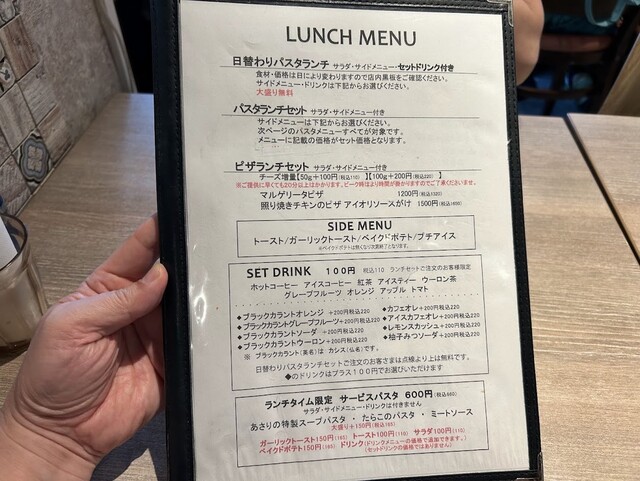 LUNCH MENU
日替わりパスタランチ サラダ・サイドメニュー・セットドリンク付き
食材・価格は日により変わりますので店内黒板をご確認ください。
サイドメニュー・ドリンクは下記からお選びください。
大盛り無料
パスタランチセット サラダ・サイドメニュー付き
サイドメニューは下記からお選びください。
次ページのパスタメニューすべてが対象です。
メニューに記載の価格がセット価格となります。
ピザランチセット サラダ・サイドメニュー付き
チーズ増量【50g+100円(税込110) 】【100g+200円(税込220) 】
※ご提供に早くても20分以上はかかります。ピーク時はより時間が掛かりますのでご了承くださいませ。
マルゲリータピザ 1200円(税込1320)
照り焼きチキンのピザ アイオリソースがけ 1500円(税込1650)
SIDE MENU
トースト/ガーリックトースト/ベイクドポテト/プチアイス
※ベイクドポテトは無くなり次第終了となります。
SET DRINK 100円 税込110 ランチセットご注文のお客様限定
ホットコーヒー アイスコーヒー 紅茶 アイスティー ウーロン茶
グレープフルーツ オレンジ アップル トマト
◆ブラックカラントオレンジ +200円税込220
◆ブラックカラントグレープフルーツ+200円税込220
◆ブラックカラントソーダ +200円税込220
◆ブラックカラントウーロン+200円税込220
◆カフェオレ+200円税込220
◆アイスカフェオレ+200円税込220
◆レモンスカッシュ+200円税込220
◆柚子みつソーダ+200円税込220
※ ブラックカラント(英名)は カシス(仏名)です。
日替わりパスタランチセットご注文のお客さまは点線より上は無料です。
◆のドリンクはプラス100円でお選びいただけます
ランチタイム限定 サービスパスタ 600円(税込660)
サラダ・サイドメニュー・ドリンクは付きません
あさりの特製スープパスタ ・ たらこのパスタ ・ ミートソース
大盛り+150円(税込165)
ガーリックトースト150円(165) トースト100円(110) サラダ100円(110)
ベイクドポテト150円(165) ドリンク(ドリンクメニューの価格で追加できます。)
(セットドリンクの価格ではありません)